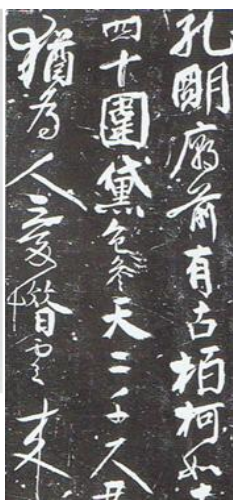 孔明廟前有古栢柯如
四十圍黛色參天二千尺
猶為人愛惜雲来